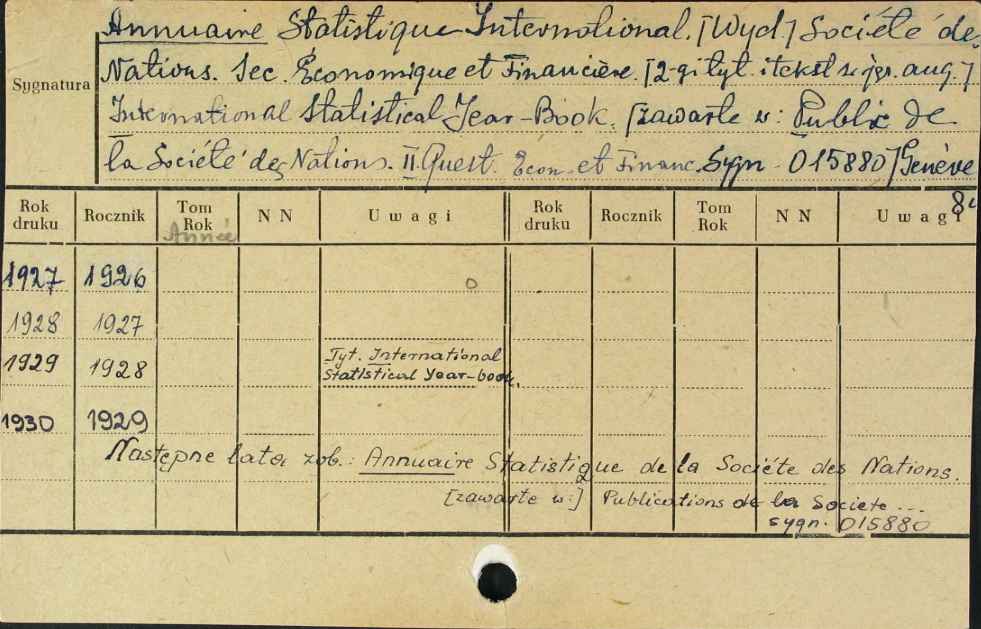 Annuaire Statistique International. [Wyd.] Société des
Sygnatura
Nations. Sec. Économique et Financière. [2-gi tyt. i tekst w jęz. ang.]
International Statistical Year-Book. [zawarte w: Public de
la Société des Nations. II Quest. Écon. et Financ. Sygn. 015880] Genève
8°
Rok druku Rocznik Tom Rok NN Uwagi Rok druku Rocznik Tom Rok NN Uwagi
Année
1927 1926
1928 1927
1929 1928 Tyt. International
Statistical Year-book.
1930 1929
Następne lata zob.: Annuaire Statistique de la Société des Nations.
[zawarte w:] Publications de la Societe ...
sygn. 015880